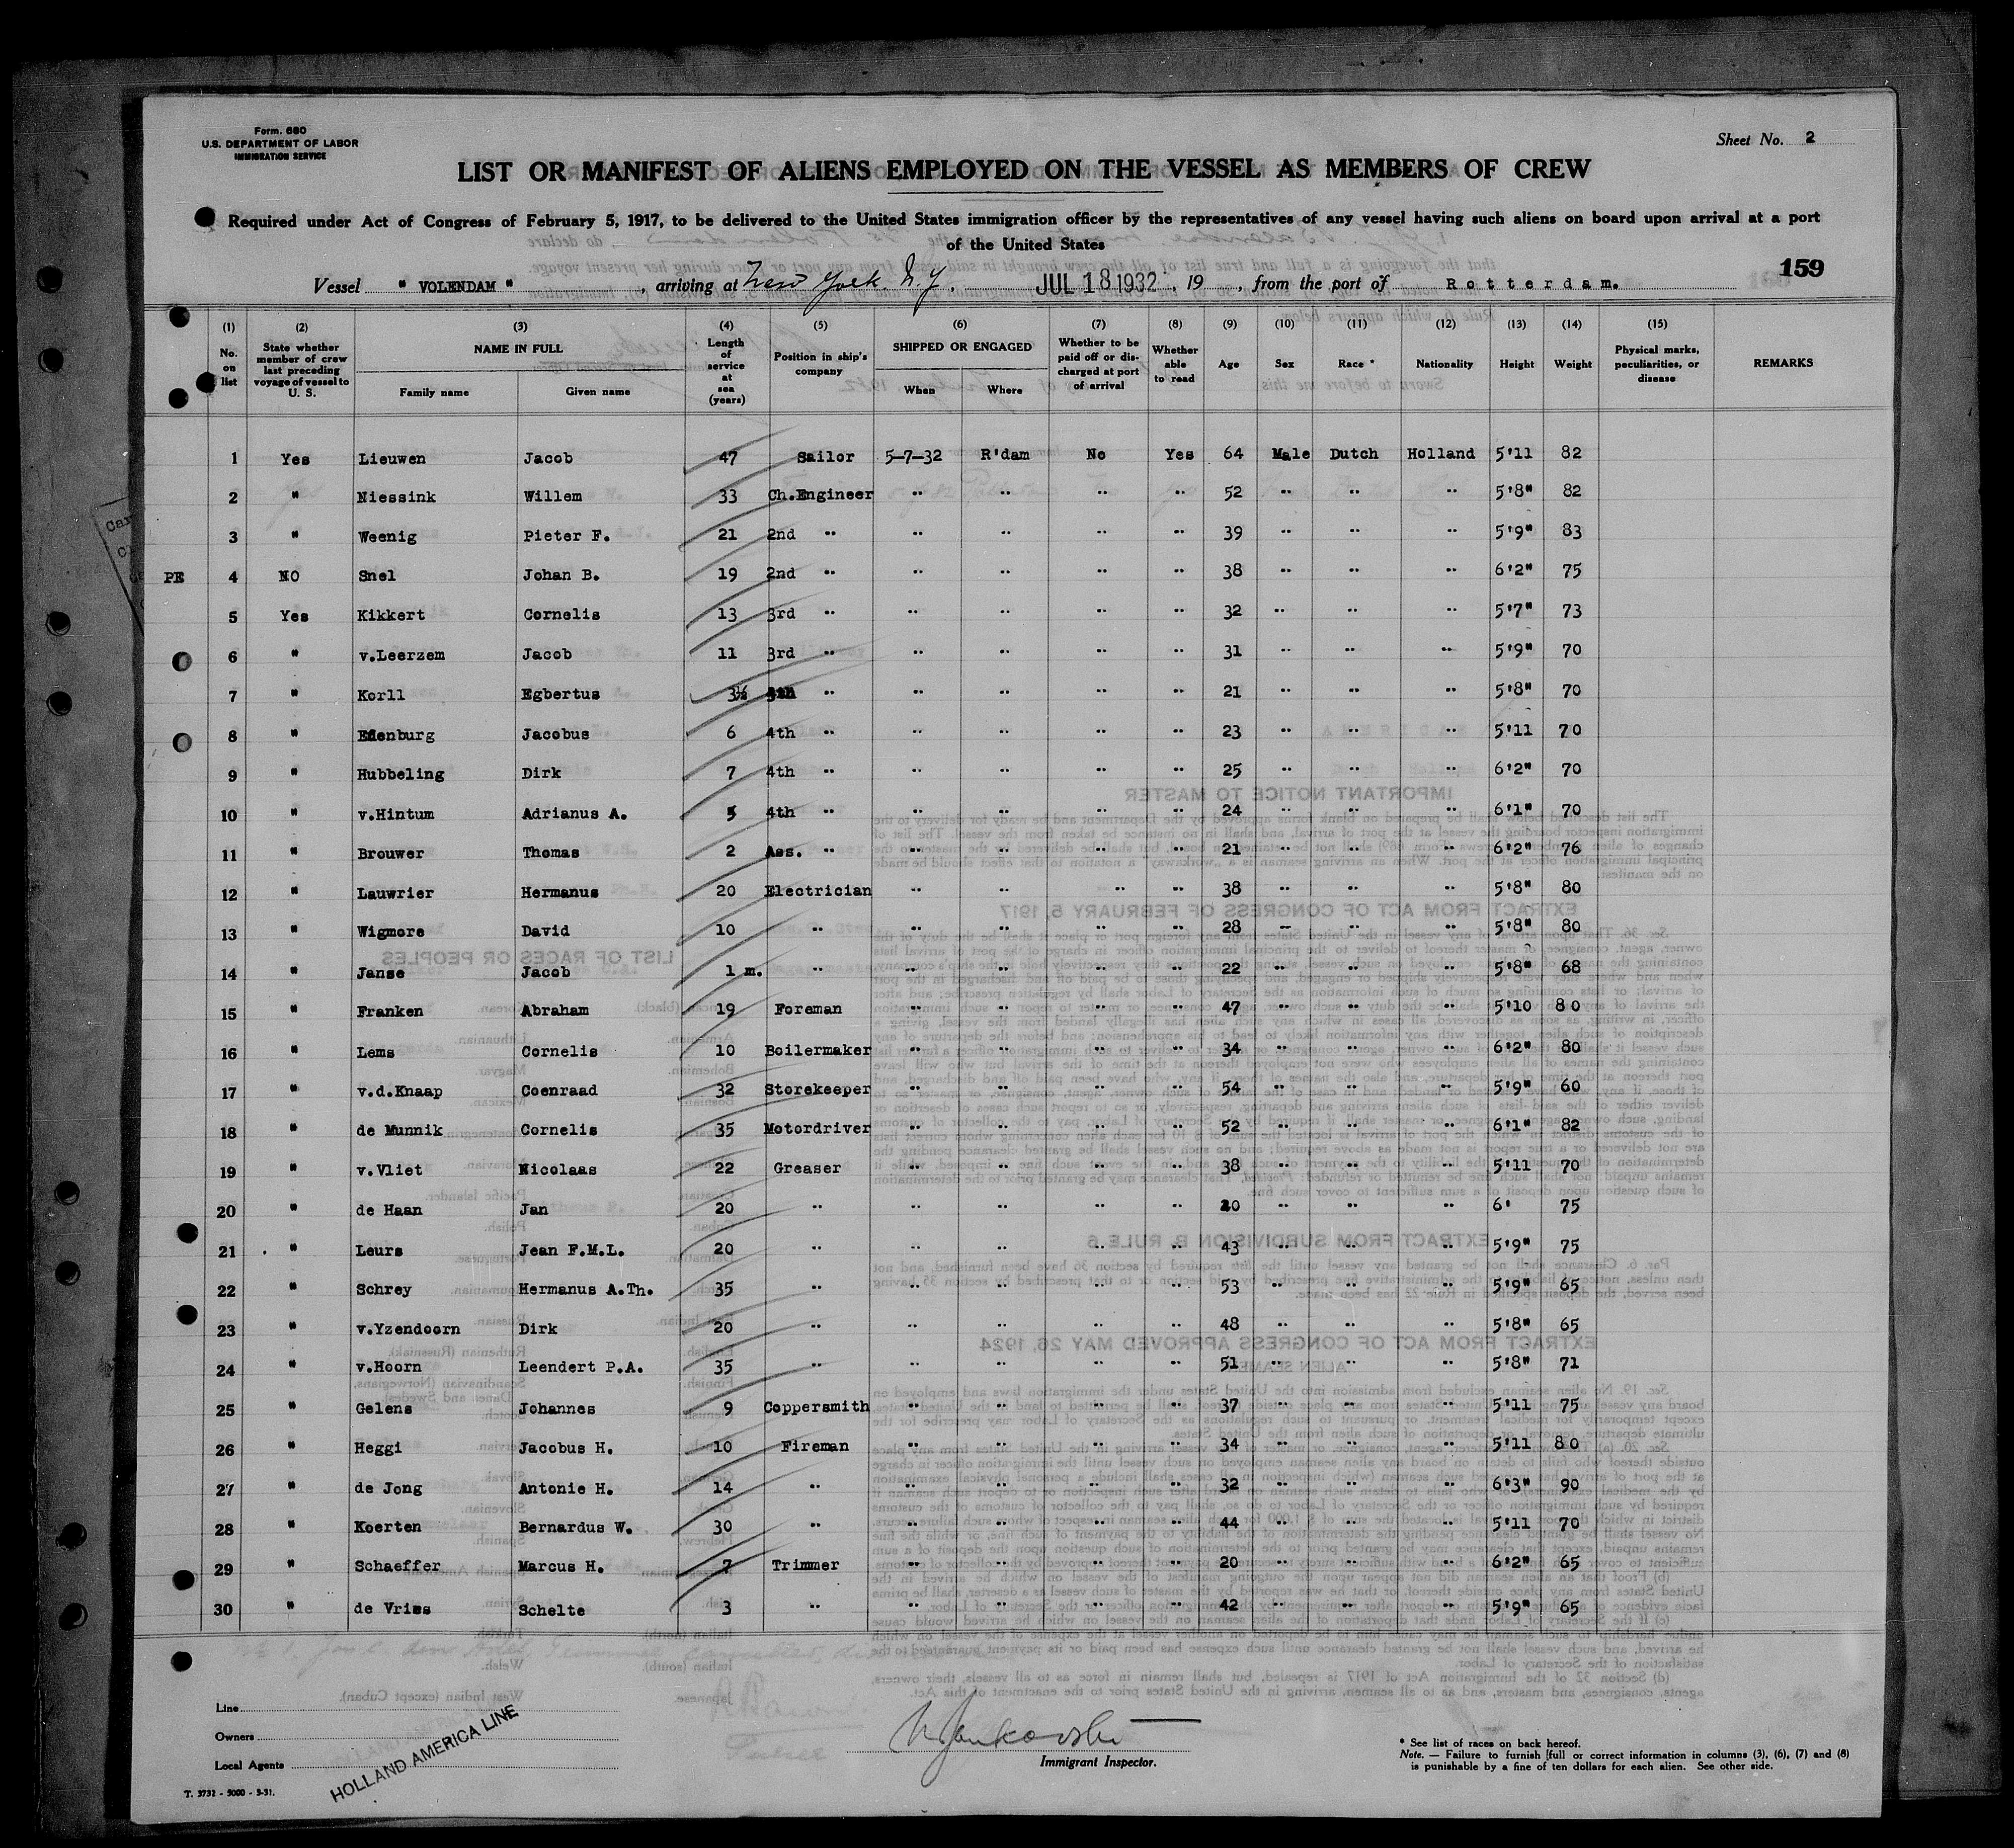 Form. 680
U.S. DEPARTMENT OF LABOR
IMMIGRATION SERVICE
Sheet No. 2
LIST OR MANIFEST OF ALIENS EMPLOYED ON THE VESSEL AS MEMBERS OF CREW
Required under Act of Congress of February 5, 1917, to be delivered to the United States immigration officer by the representatives of any vessel having such aliens on board upon arrival at a port
of the United States
159
Vessel " VOLENDAM " , arriving at New York. N.Y. JUL 18 1932 , 19 , from the port of Rotterdam.
(1) (2) (3) (4) (5) (6) (7) (8) (9) (10) (11) (12) (13) (14) (15)
No. on list State whether member of crew last preceding voyage of vessel to U. S. NAME IN FULL Family name Given name Length of service at sea (years) Position in ship's company SHIPPED OR ENGAGED When Where Whether to be paid off or discharged at port of arrival Whether able to read Age Sex Race * Nationality Height Weight Physical marks, peculiarities, or disease REMARKS
1 Yes Lieuwen Jacob 47 Sailor 5-7-32 R'dam No Yes 64 Male Dutch Holland 5'11 82
2 " Niessink Willem 33 Ch.Engineer " " " " 52 " " " 5'8" 82
3 " Weenig Pieter F. 21 2nd " " " " " 39 " " " 5'9" 83
PE 4 NO Snel Johan B. 19 2nd " " " " " 38 " " " 6'2" 75
5 Yes Kikkert Cornelis 13 3rd " " " " " 32 " " " 5'7" 73
6 " v.Leerzem Jacob 11 3rd " " " " " 31 " " " 5'9" 70
7 " Korll Egbertus 3½ " " " " " 21 " " " 5'8" 70
8 " Edenburg Jacobus 6 4th " " " " " 23 " " " 5'11 70
9 " Hubbeling Dirk 7 4th " " " " " 25 " " " 6'2" 70
10 " v.Hintum Adrianus A. 5 4th " " " " " 24 " " " 6'1" 70
11 " Brouwer Thomas 2 Ass. " " " " " 21 " " " 6'2" 76
12 " Lauwrier Hermanus 20 Electrician " " " " 38 " " " 5'8" 80
13 " Wigmore David 10 " " " " " 28 " " " 5'8" 80
14 " Janse Jacob 1 m. " " " " " 22 " " " 5'8" 68
15 " Franken Abraham 19 Foreman " " " " 47 " " " 5'10 80
16 " Lems Cornelis 10 Boilermaker " " " " 34 " " " 6'2" 80
17 " v.d.Knaap Coenraad 32 Storekeeper " " " " 54 " " " 5'9" 60
18 " de Munnik Cornelis 35 Motordriver " " " " 52 " " " 6'1" 82
19 " v.Vliet Nicolaas 22 Greaser " " " " 38 " " " 5'11 70
20 " de Haan Jan 20 " " " " " " " " 6' 75
21 " Leurs Jean F.M.L. 20 " " " " " 43 " " " 5'9" 75
22 " Schrey Hermanus A.Th. 35 " " " " " 53 " " " 5'9" 65
23 " v.Yzendoorn Dirk 20 " " " " " 48 " " " 5'8" 65
24 " v.Hoorn Leendert P.A. 35 " " " " " 51 " " " 5'8" 71
25 " Gelens Johannes 9 Coppersmith " " " " 37 " " " 5'11 75
26 " Heggi Jacobus H. 10 Fireman " " " " 34 " " " 5'11 80
27 " de Jong Antonie H. 14 " " " " " 32 " " " 6'3" 90
28 " Koerten Bernardus W. 30 " " " " " 44 " " " 5'11 70
29 " Schaeffer Marcus H. 7 Trimmer " " " " 20 " " " 6'2" 65
30 " de Vries Schelte 3 " " " " " 42 " " " 5'9" 65
Line
Owners
Local Agents
HOLLAND AMERICA LINE
Immigrant Inspector.
* See list of races on back hereof.
Note. — Failure to furnish full or correct information in columns (3), (6), (7) and (8)
is punishable by a fine of ten dollars for each alien. See other side.
T. 3732 - 5000 - 3-31.